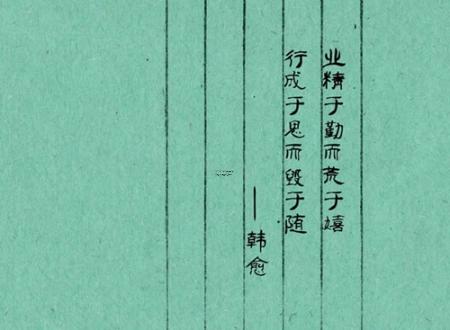 业精于勤而荒于嬉
行成于思而毁于随
—韩愈